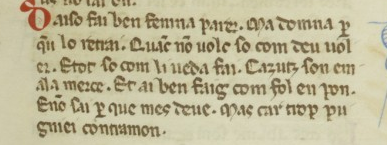 Daiso fai ben femna parer. Ma domna per
qeu lo retrai. Quar no uolc so com deu uol
er. Etot so com li ueda fai. Cazutz son em
ala merce. Et ai ben faig com fol en pon.
Eno sai per que mes deue. Mas car trop pu
giei contramon.